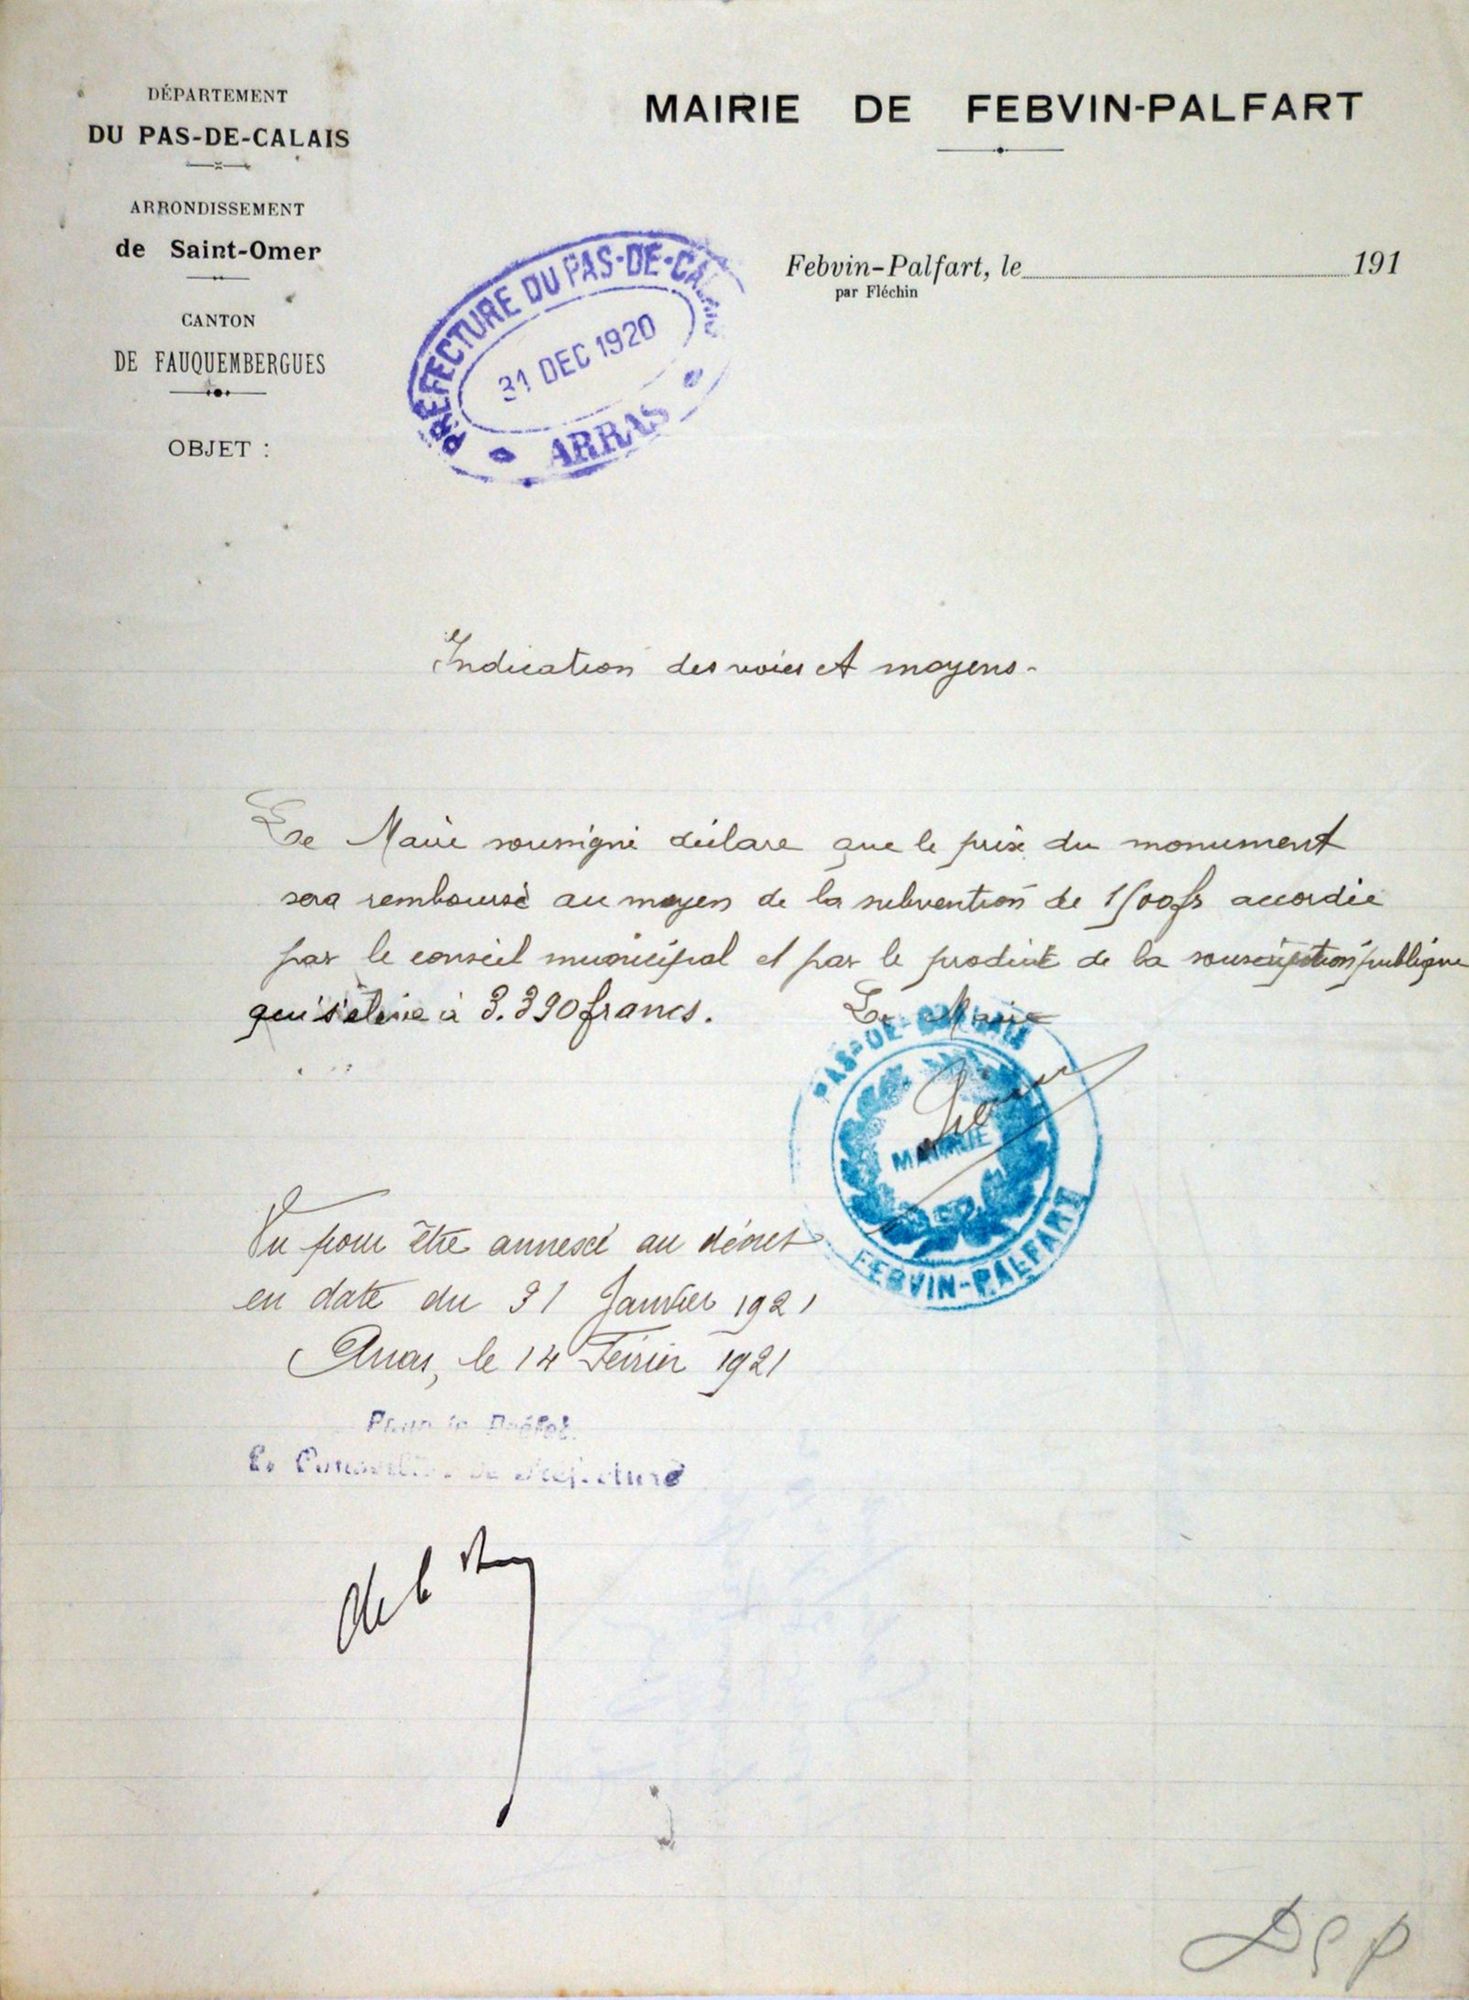 DÉPARTEMENT
DU PAS-DE-CALAIS
ARRONDISSEMENT
de Saint-Omer
CANTON
DE FAUQUEMBERGUES
OBJET :
MAIRIE DE FEBVIN-PALFART
Febvin-Palfart, le 191
par Fléchin
PREFECTURE DU PAS-DE-CALAIS
31 DEC 1920
ARRAS
Indication des voies et moyens.
Le Maire soussigné déclare que le prix du monument
sera remboursé au moyen de la subvention de 1500 fs accordée
par le conseil municipal et par le produit de la souscription publique
qui s'élève à 3.390 francs.
Le Maire
PAS-DE-CALAIS
MAIRIE
FEBVIN-PALFART
Vu pour être annexé au décret
en date du 31 Janvier 1921
Arras, le 14 Février 1921
Pour le Préfet.
Le Conseiller de Préfecture